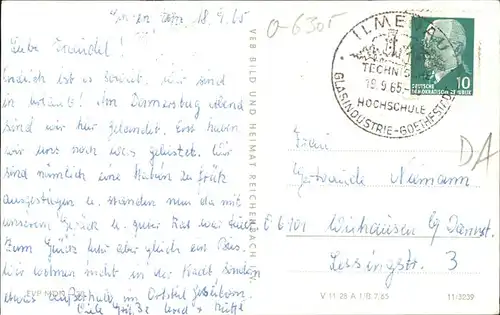 18.9.65
Liebe Traudel!
Endlich ist es soweit, wir sind
in Urlaub! Am Donnerstag abend
sind wir hier gelandet. Erst haben
wir uns noch was geleistet. Wir
sind nämlich eine Station zu früh
ausgestiegen u. standen nun da mit
unserem Gepäck u. guter Rat war teuer.
Zum Glück kam aber gleich ein Bus.
Wir wohnen nicht in der Stadt sondern
etwas außerhalb im Ortsteil
Viele Grüße
EVP MDN
VEB BILD UND HEIMAT REICHENBACH
O-6305
ILMENAU
TECHNISCHE
19.9.65
HOCHSCHULE
GLASINDUSTRIE-GOETHESTADT
10
DEUTSCHE
DEMOKRATISCHE REPUBLIK
DA
Frau
Gertraude Neumann
6101
Lessingstr. 3
V 11 28 A 1/B 7,65
11/3239